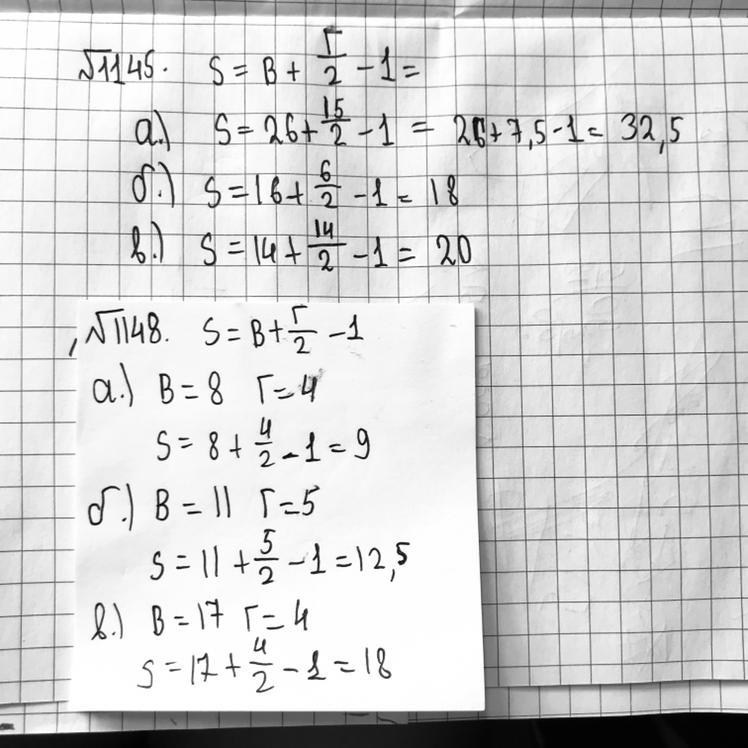 №1145. S = В + Г/2 - 1 =
а.) S = 26 + 15/2 - 1 = 26 + 7,5 - 1 = 32,5
б.) S = 16 + 6/2 - 1 = 18
в.) S = 14 + 14/2 - 1 = 20
№1148. S = В + Г/2 - 1
а.) В = 8 Г = 4
S = 8 + 4/2 - 1 = 9
б.) В = 11 Г = 5
S = 11 + 5/2 - 1 = 12,5
в.) В = 17 Г = 4
S = 17 + 4/2 - 1 = 18